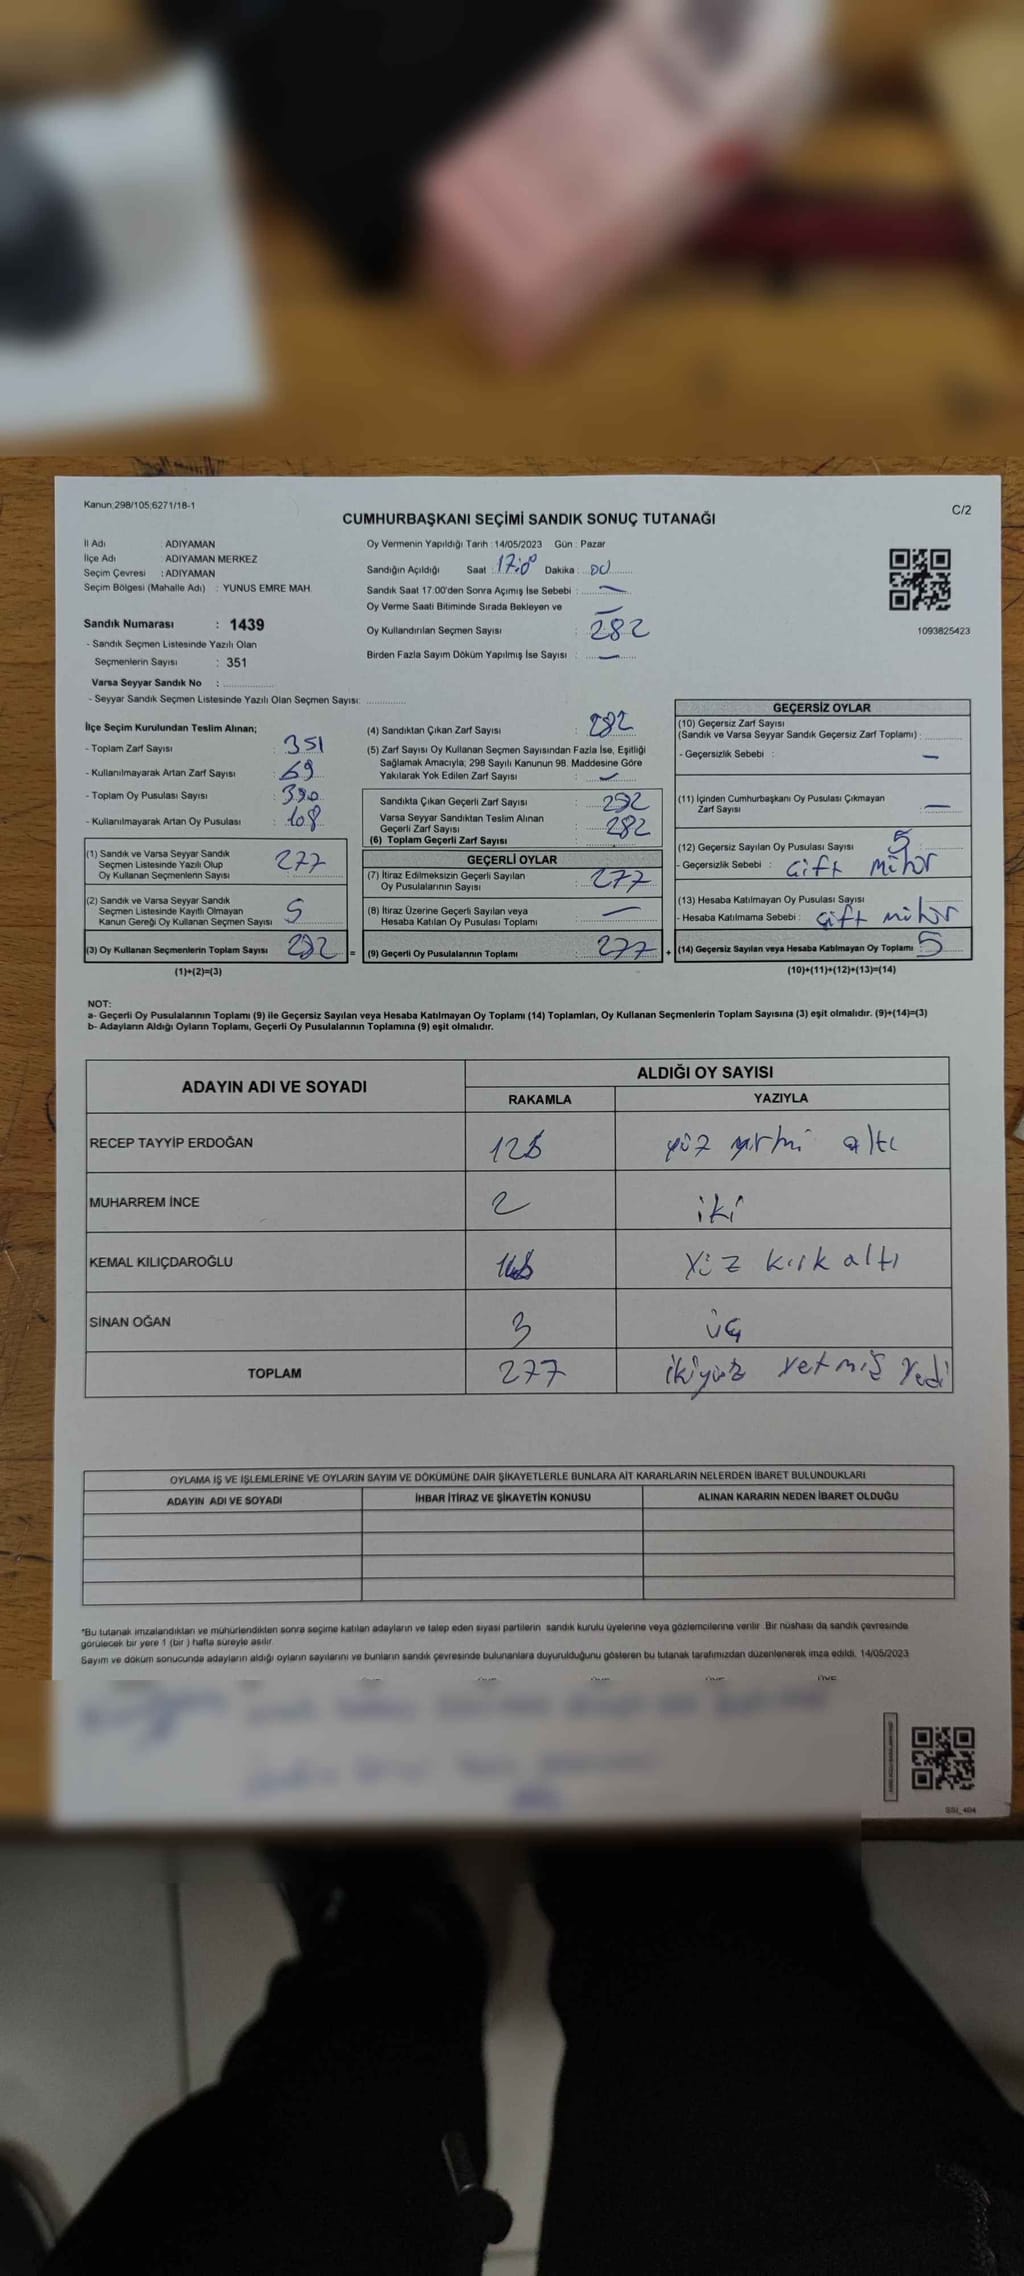 Kanun;298/105;6271/18-1
C/2
CUMHURBAŞKANI SEÇİMİ SANDIK SONUÇ TUTANAĞI
İl Adı : ADIYAMAN
İlçe Adı : ADIYAMAN MERKEZ
Seçim Çevresi : ADIYAMAN
Seçim Bölgesi (Mahalle Adı) : YUNUS EMRE MAH.
Sandık Numarası : 1439
- Sandık Seçmen Listesinde Yazılı Olan
Seçmenlerin Sayısı : 351
Varsa Seyyar Sandık No :
- Seyyar Sandık Seçmen Listesinde Yazılı Olan Seçmen Sayısı:
Oy Vermenin Yapıldığı Tarih :14/05/2023 Gün : Pazar
Sandığın Açıldığı Saat : 17:00 Dakika : 00
Sandık Saat 17.00'den Sonra Açımış İse Sebebi : —
Oy Verme Saati Bitiminde Sırada Bekleyen ve —
Oy Kullandırılan Seçmen Sayısı : 282
Birden Fazla Sayım Döküm Yapılmış İse Sayısı : —
1093825423
İlçe Seçim Kurulundan Teslim Alınan;
- Toplam Zarf Sayısı : 351
- Kullanılmayarak Artan Zarf Sayısı : 69
- Toplam Oy Pusulası Sayısı : 390
- Kullanılmayarak Artan Oy Pusulası : 108
(1) Sandık ve Varsa Seyyar Sandık
Seçmen Listesinde Yazılı Olup
Oy Kullanan Seçmenlerin Sayısı : 277
(2) Sandık ve Varsa Seyyar Sandık
Seçmen Listesinde Kayıtlı Olmayan
Kanun Gereği Oy Kullanan Seçmen Sayısı : 5
(3) Oy Kullanan Seçmenlerin Toplam Sayısı : 282 =
(1)+(2)=(3)
(4) Sandıktan Çıkan Zarf Sayısı : 282
(5) Zarf Sayısı Oy Kullanan Seçmen Sayısından Fazla İse, Eşitliği
Sağlamak Amacıyla; 298 Sayılı Kanunun 98. Maddesine Göre
Yakılarak Yok Edilen Zarf Sayısı : —
Sandıkta Çıkan Geçerli Zarf Sayısı : 282
Varsa Seyyar Sandıktan Teslim Alınan
Geçerli Zarf Sayısı : 282
(6) Toplam Geçerli Zarf Sayısı :
GEÇERLİ OYLAR
(7) İtiraz Edilmeksizin Geçerli Sayılan
Oy Pusulalarının Sayısı : 277
(8) İtiraz Üzerine Geçerli Sayılan veya
Hesaba Katılan Oy Pusulası Toplamı : —
(9) Geçerli Oy Pusulalarının Toplamı : 277 +
GEÇERSİZ OYLAR
(10) Geçersiz Zarf Sayısı
(Sandık ve Varsa Seyyar Sandık Geçersiz Zarf Toplamı) :
- Geçersizlik Sebebi : —
(11) İçinden Cumhurbaşkanı Oy Pusulası Çıkmayan
Zarf Sayısı : —
(12) Geçersiz Sayılan Oy Pusulası Sayısı : 5
- Geçersizlik Sebebi : Çift mühür
(13) Hesaba Katılmayan Oy Pusulası Sayısı :
- Hesaba Katılmama Sebebi : çift mühür
(14) Geçersiz Sayılan veya Hesaba Katılmayan Oy Toplamı : 5
(10)+(11)+(12)+(13)=(14)
NOT:
a- Geçerli Oy Pusulalarının Toplamı (9) ile Geçersiz Sayılan veya Hesaba Katılmayan Oy Toplamı (14) Toplamları, Oy Kullanan Seçmenlerin Toplam Sayısına (3) eşit olmalıdır. (9)+(14)=(3)
b- Adayların Aldığı Oyların Toplamı, Geçerli Oy Pusulalarının Toplamına (9) eşit olmalıdır.
ADAYIN ADI VE SOYADI
ALDIĞI OY SAYISI
RAKAMLA YAZIYLA
RECEP TAYYİP ERDOĞAN 126 yüz yirmi altı
MUHARREM İNCE 2 iki
KEMAL KILIÇDAROĞLU 146 Yüz kırk altı
SİNAN OĞAN 3 üç
TOPLAM 277 ikiyüz yetmiş yedi
OYLAMA İŞ VE İŞLEMLERİNE VE OYLARIN SAYIM VE DÖKÜMÜNE DAİR ŞİKAYETLERLE BUNLARA AİT KARARLARIN NELERDEN İBARET BULUNDUKLARI
ADAYIN ADI VE SOYADI İHBAR İTİRAZ VE ŞİKAYETİN KONUSU ALINAN KARARIN NEDEN İBARET OLDUĞU
*Bu tutanak imzalandıktan ve mühürlendikten sonra seçime katılan adayların ve talep eden siyasi partilerin sandık kurulu üyelerine veya gözlemcilerine verilir. Bir nüshası da sandık çevresinde
görülecek bir yere 1 (bir ) hafta süreyle asılır.
Sayım ve döküm sonucunda adayların aldığı oyların sayılarını ve bunların sandık çevresinde bulunanlara duyurulduğunu gösteren bu tutanak tarafımızdan düzenlenerek imza edildi. 14/05/2023